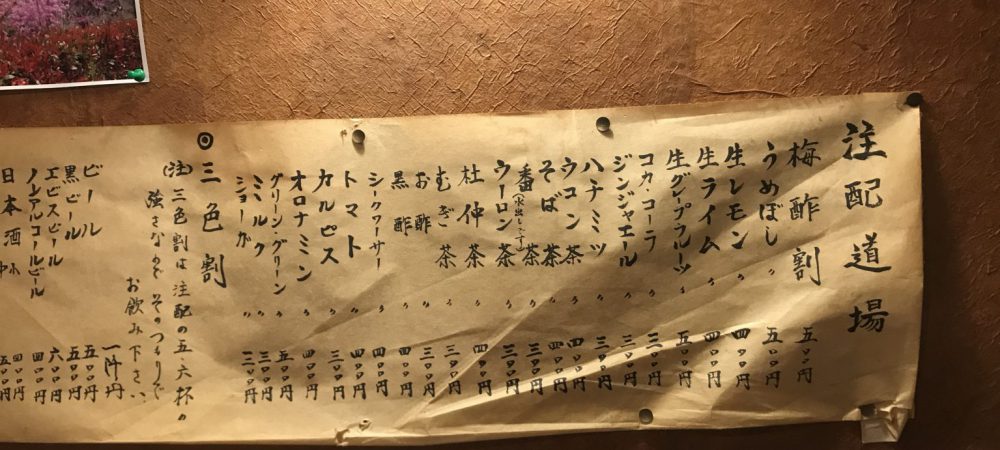 注配道場
梅酢割 五〇〇円
うめぼし 〃 五〇〇円
生レモン 〃 四〇〇円
生ライム 〃 四〇〇円
生グレープフルーツ 〃 五〇〇円
コカ・コーラ 〃 三〇〇円
ジンジャエール 〃 三〇〇円
ハチミツ 〃 三〇〇円
ウコン茶 〃 四〇〇円
そば茶 〃 四〇〇円
番茶(水出しです) 〃 三〇〇円
ウーロン茶 〃 三〇〇円
杜仲茶 〃 四〇〇円
むぎ茶 〃 三〇〇円
お酢 〃 三〇〇円
黒酢 〃 四〇〇円
シークワーサー 〃 四〇〇円
トマト 〃 四〇〇円
カルピス 〃 三〇〇円
オロナミン 〃 四〇〇円
グリーン・グリーン 〃 五〇〇円
ミルク 〃 三〇〇円
ショーが 〃 三〇〇円
◎三色割
(注)三色割は注配の五六杯の
強さなので そのつもりで
お飲み下さい
一阡円
ビール 五〇〇円
黒ビール 五〇〇円
エビスビール 六〇〇円
ノンアルコールビール 四〇〇円
日本酒